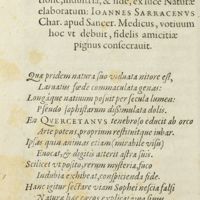 tione, industria, & fide, ex luce Naturæ
elaboratum: IOANNES SARRACENVS
Char. apud Sancer. Medicus, votiuum
hoc vt debuit, fidelis amicitiæ
pignus consecrauit.
Quæ pridem natura suo viduata nitore est,
Laruatis fœdè commaculata genas:
Longáque natiuum posuit per secula lumen:
Pseudo sophistarum dissimulata dolis.
En QVERCETANVS tenebroso educit ab orco
Arte potens, proprium restituitque iubar.
Ipsas quin animas etiam (mirabile visu)
Euocat, & digitis alterit astra suis.
Scilicet vt posito, rerum mysteria, fuco
Indubia exhibeat, conspicienda fide.
Hanc igitur sectare viam Sophiei nescia falsi
Natura hæc